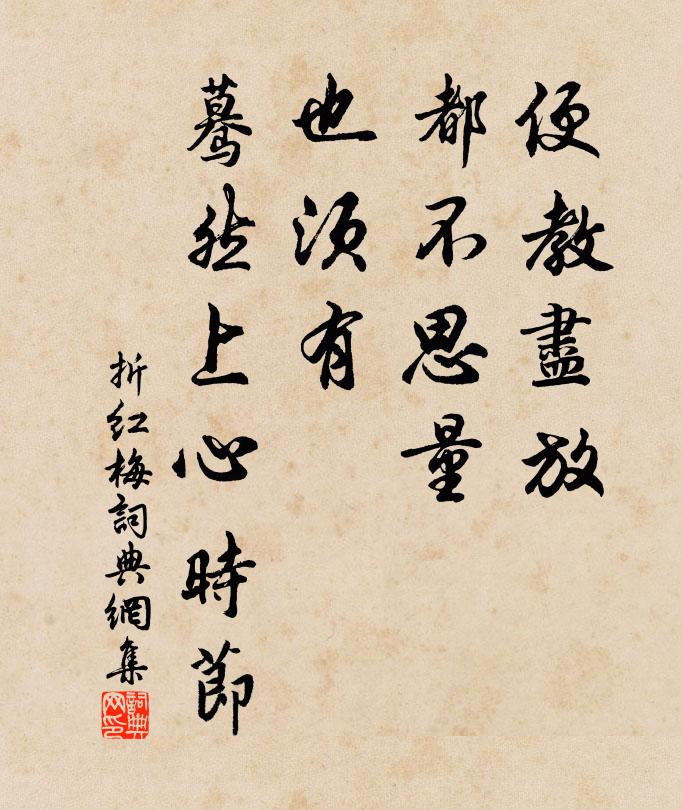 便教盡放
都不思量
也須有
驀然上心時節
折紅梅詞典網集
詞典网印